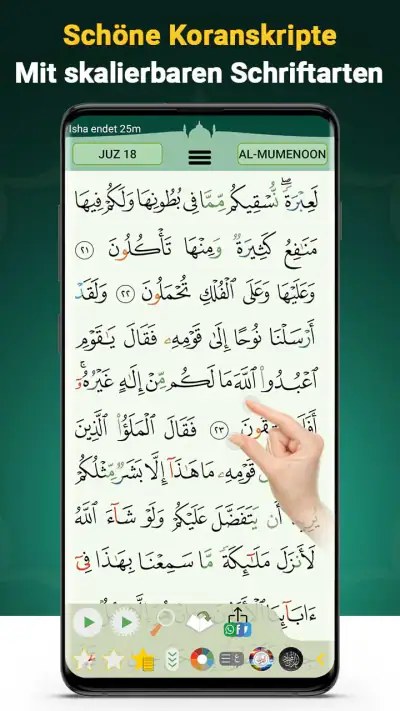 Schöne Koranskripte
Mit skalierbaren Schriftarten
Isha endet 25m
JUZ 18
AL-MUMENOON
لَعِبْرَةً ۖ نُّسْقِيكُم مِّمَّا فِى بُطُونِهَا وَلَكُمْ فِيهَا
مَنَـٰفِعُ كَثِيرَةٌ وَمِنْهَا تَأْكُلُونَ ٢١
وَعَلَيْهَا وَعَلَى ٱلْفُلْكِ تُحْمَلُونَ ٢٢ وَلَقَدْ
أَرْسَلْنَا نُوحًا إِلَىٰ قَوْمِهِۦ فَقَالَ يَـٰقَوْمِ
ٱعْبُدُوا۟ ٱللَّهَ مَا لَكُم مِّنْ إِلَـٰهٍ غَيْرُهُۥٓ ۚ
٢٣ فَقَالَ ٱلْمَلَؤُا۟ ٱلَّذِينَ
قَوْمِهِۦ مَا هَـٰذَآ إِلَّا بَشَرٌ مِّثْلُكُمْ
يُرِيدُ أَن يَتَفَضَّلَ عَلَيْكُمْ وَلَوْ شَآءَ ٱللَّهُ
لَأَنزَلَ مَلَـٰٓئِكَةً مَّا سَمِعْنَا بِهَـٰذَا فِىٓ